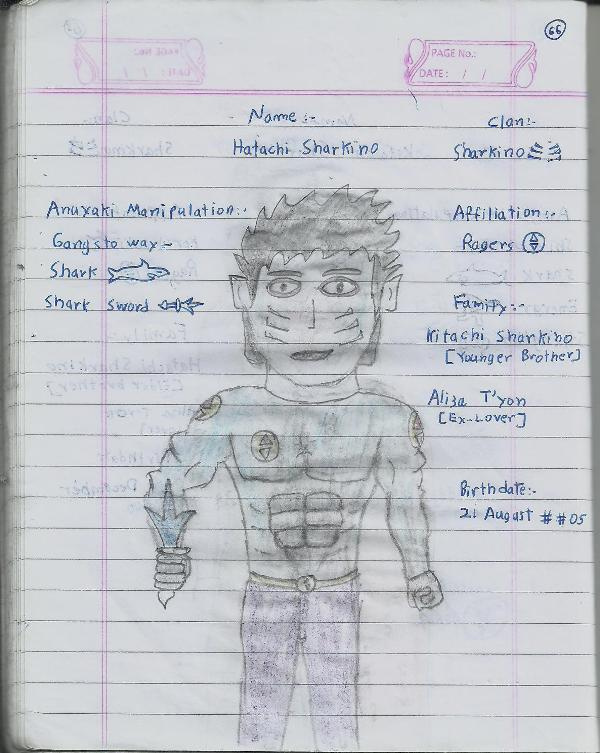 66
PAGE No.:
DATE: / /
Name:-
Hatachi Sharkino
Clan:-
Sharkino
Anuxaki Manipulation:-
Gangsto way:-
Shark
Shark Sword
Affiliation:-
Ragers
Family:-
Kitachi Sharkino
[Younger Brother]
Aliza T'yon
[Ex-Lover]
Birthdate:-
21 August ##05